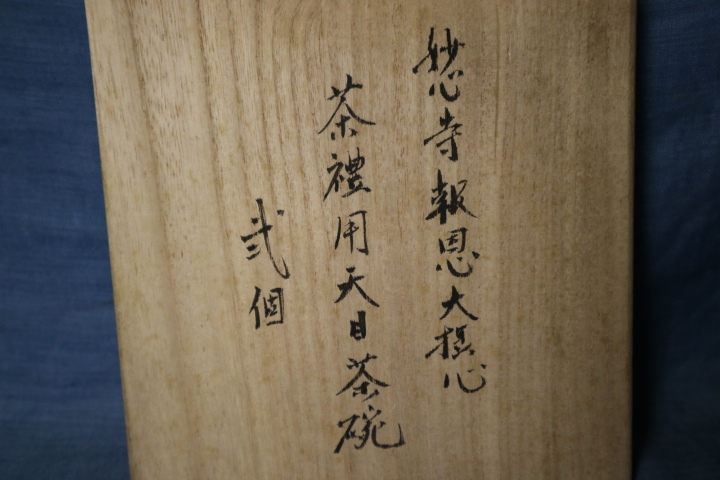 妙心寺報恩大摂心
茶禮用天目茶碗
弐個